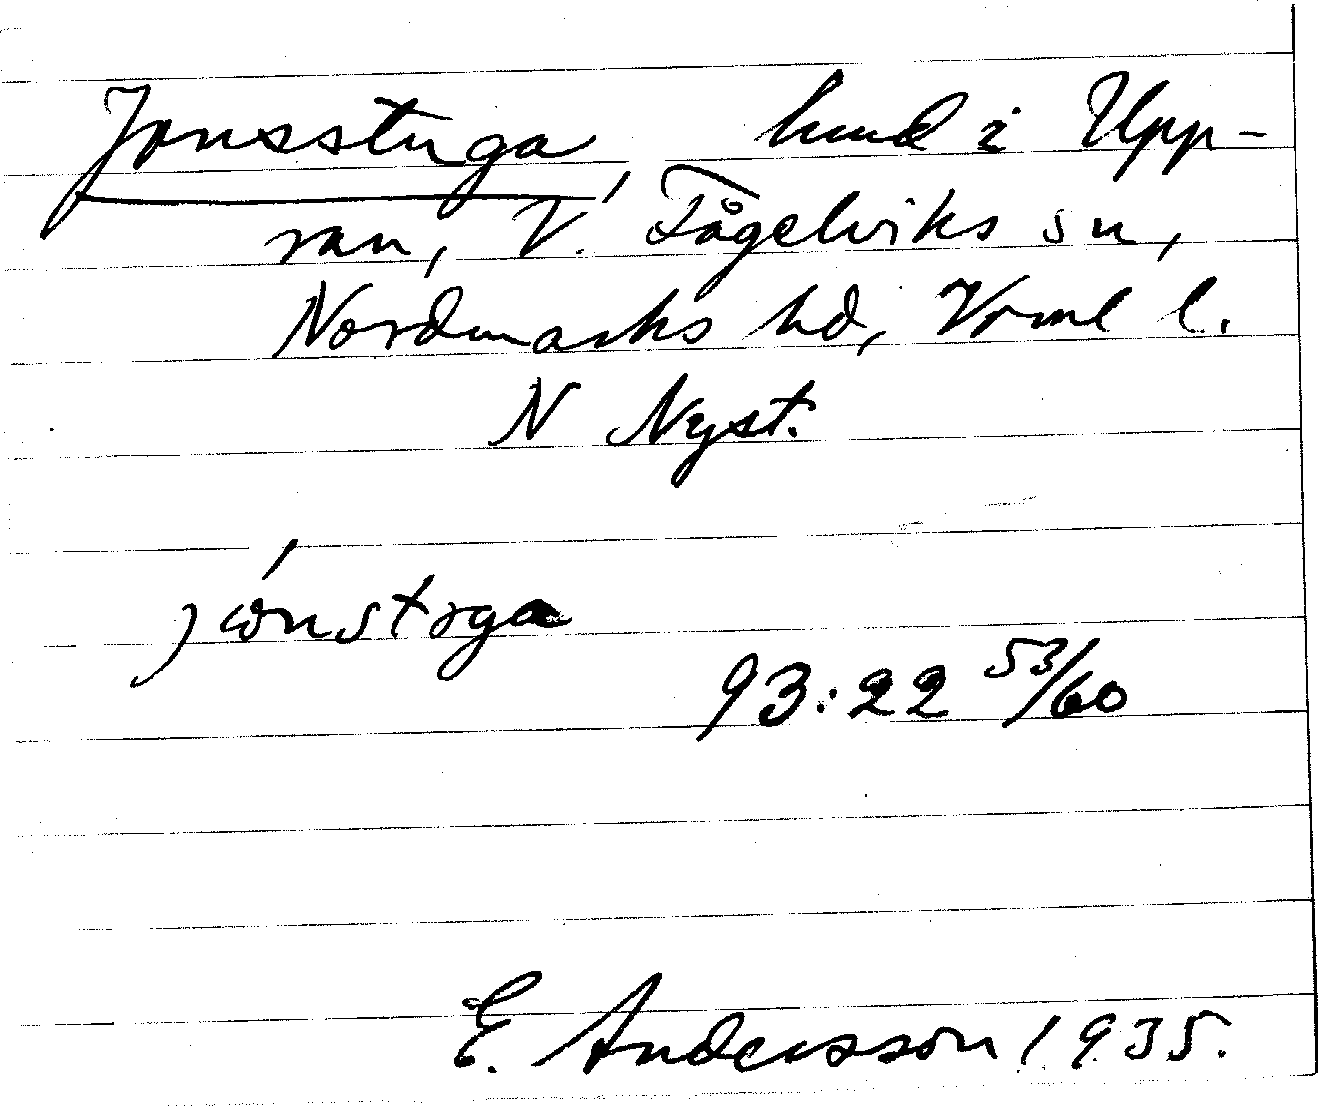 Jonsstuga, hmd i Upp-
ran, V. Fågelviks sn,
Nordmarks hd, Vrml l.
N Nyst.
93:22 53/60
E. Andersson 1935.